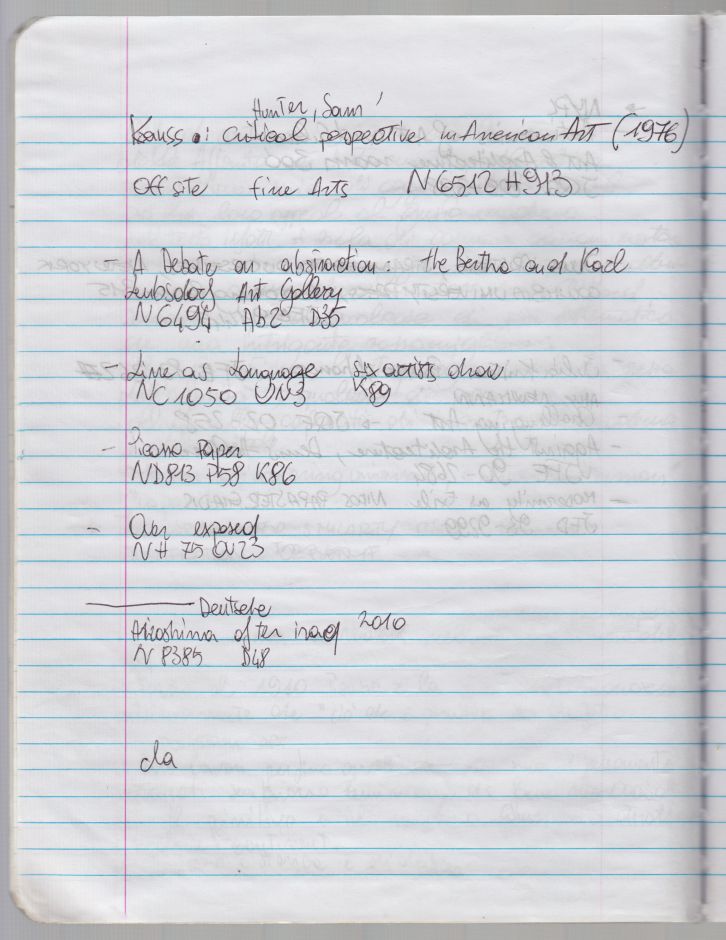 Hunter, Sam
Krauss : Critical perspective in American Art (1976)
Off site fine Arts N6512 H913
- A Debate on abstraction: the Bertha and Karl
Leubsdorf Art Gallery
N6494 Ab2 D35
- Line as Language Six artists draw
NC1050 UN3 K89
- Picasso Paper
ND813 P58 K86
- Over exposed
NH 75 Ov23
Deutsche
Hiroshima after iraq 2010
N8385 D48
da